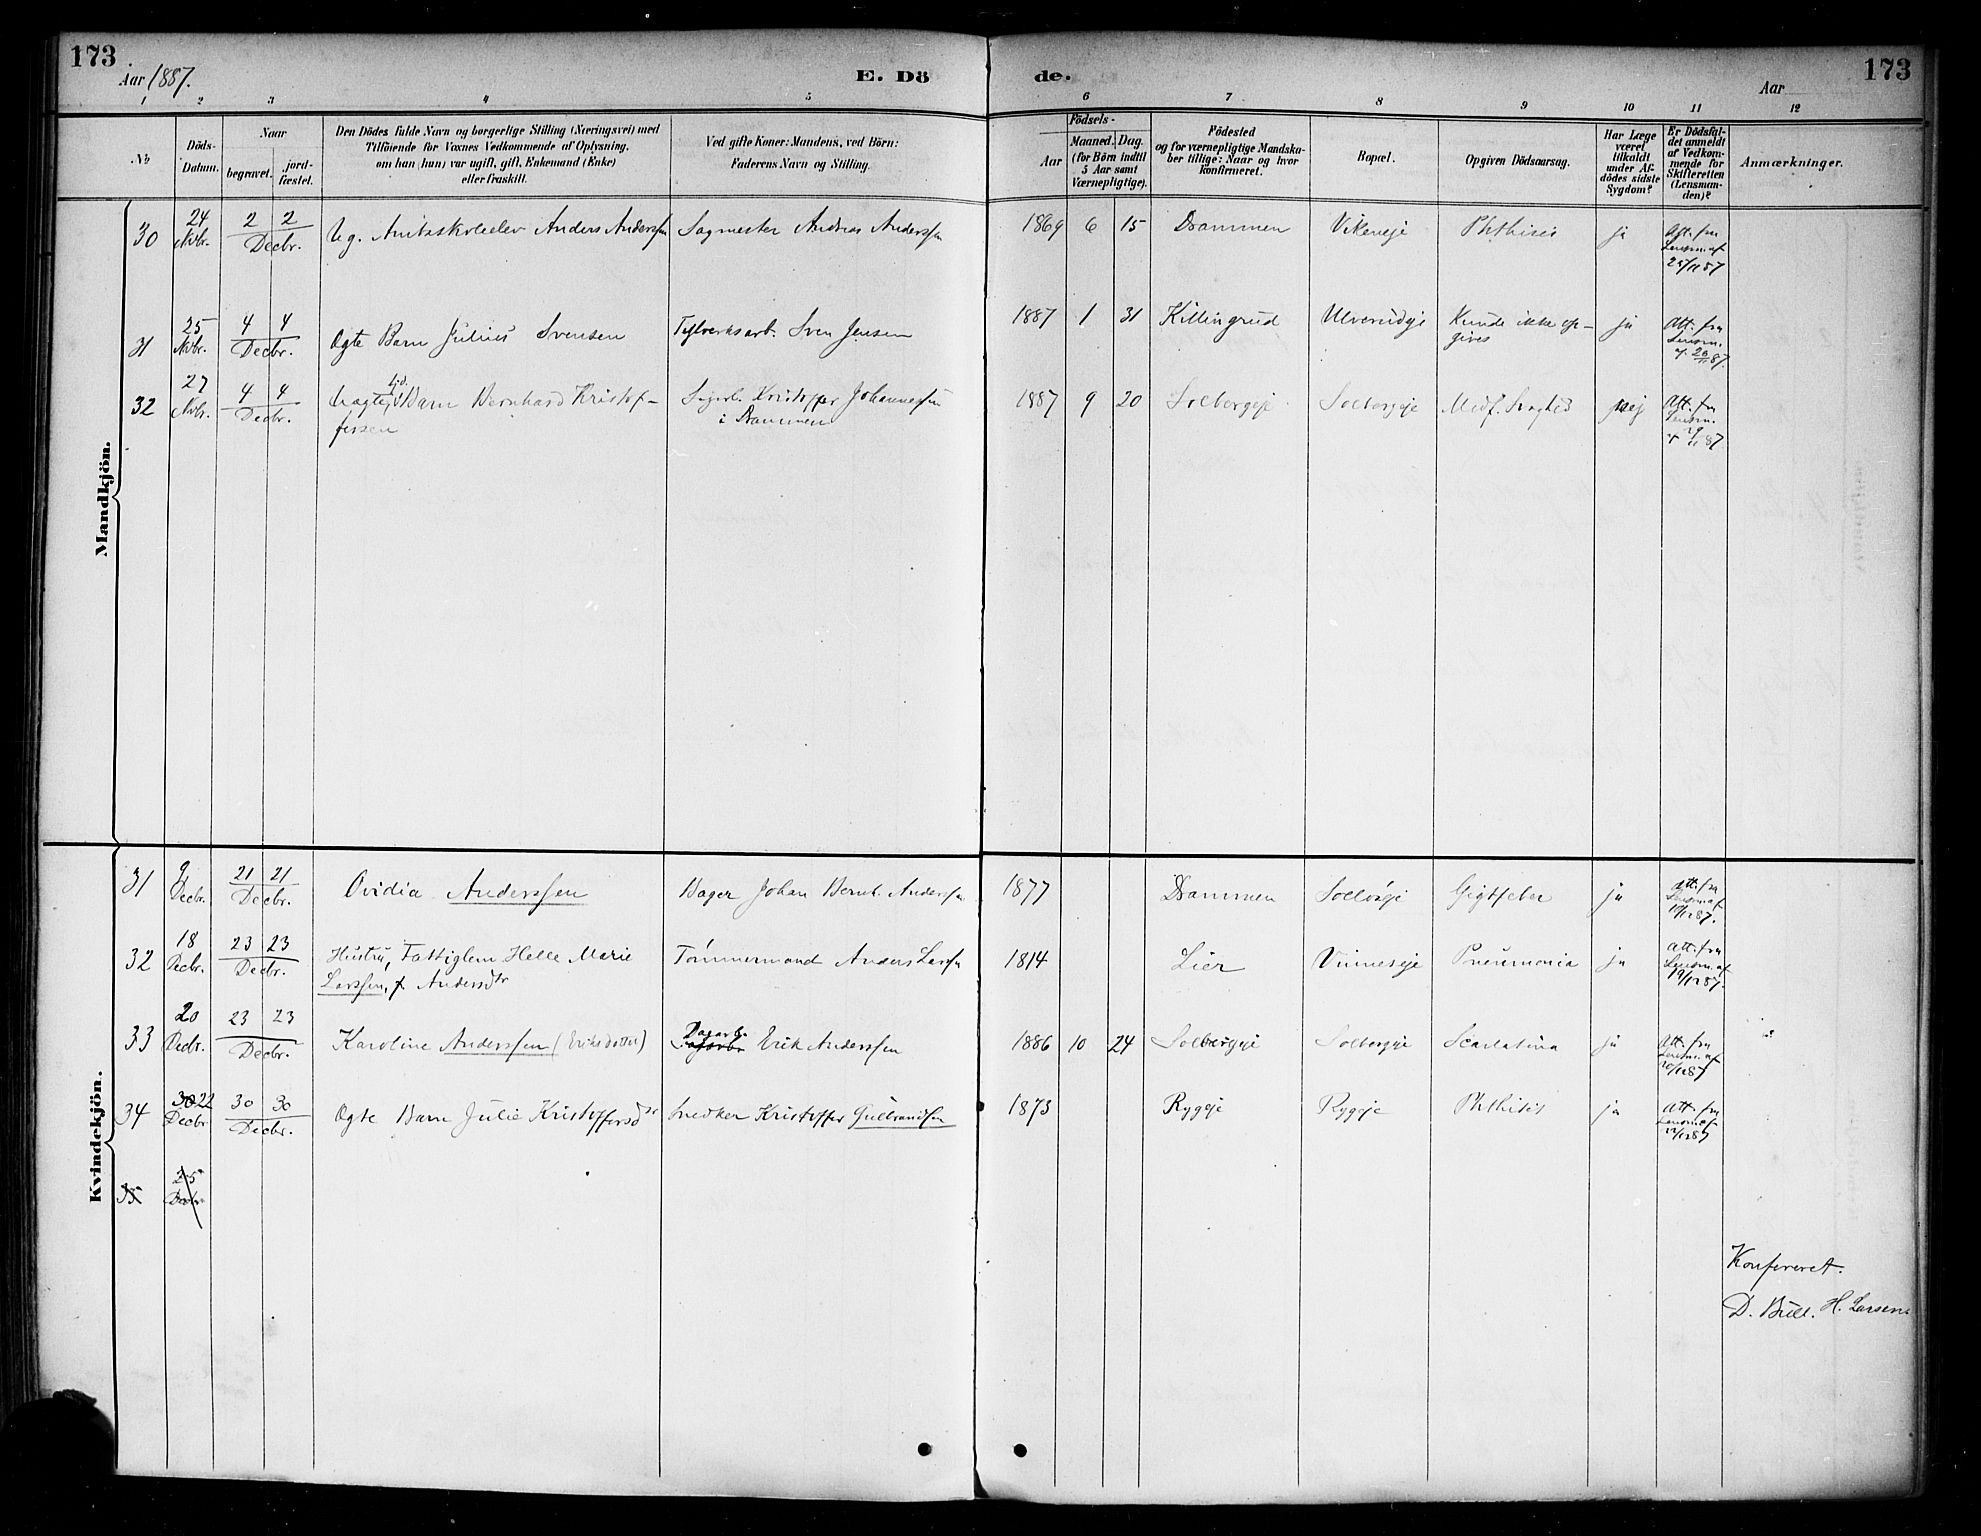 173
Aar 1887.
E. Dö
de.
Aar
173
1 2 3 4 5 6 7 8 9 10 11 12
No
Döds-
Datum.
Naar
begravet.
jord-
fæstet.
Den Dödes fulde Navn og borgerlige Stilling (Næringsvei) med
Tilföiende for Voxnes Vedkommende af Oplysning,
om han (hun) var ugift, gift, Enkemand (Enke)
eller fraskilt.
Ved gifte Koner: Mandens, ved Börn:
Faderens Navn og Stilling.
Födsels-
Aar
Maaned. Dag.
(for Börn indtil
5 Aar samt
Værnepligtige).
Födested
og for værnepligtige Mandska-
ber tillige: Naar og hvor
konfirmeret.
Bopæl.
Opgiven Dödsaarsag.
Har Læge
været
tilkaldt
under Af-
dödes sidste
Sygdom?
Er Dödsfal-
det anmeldt
af Vedkom-
mende for
Skifteretten
(Lensman-
den)?
Anmærkninger.
Mandkjön.
30 24 Nvbr. 2 2 Decbr. Ug. Amtsskoleelev Anders Anderssen Sagmester Andreas Anderssen 1869 6 15 Drammen Vikeneje Phthisis ja Att. fra Lensm. af 25/11 87
31 25 Nvbr. 4 4 Decbr. Ægte Barn Julius Svensen Sven Jensen 1887 1 31 Killingrud Ulverudeje Kunde ikke op-
gives ja Att. fra Lensm. af 26/11 87.
32 27 Nvbr. 4 4 Decbr. Uægte Barn Bernhard Kristof-
fersen Kristoffer Johannessen
i Drammen 1887 9 20 Solbergeje Solbergeje Medf. Svaghed nej Att. fra Lensm. af 29/11 87
Kvindekjön.
31 9 Decbr. 21 21 Decbr. Ovidia Anderssen Bager Johan Bernh. Anderssen 1877 Drammen Gigtfeber ja Att. fra Lensm. af 19/12 87.
32 18 Decbr. 23 23 Decbr. Hustru, Fattiglem Helle Marie
Larssen, f. Andersdtr Tømmermand Anders Larssen 1814 Lier Vinneseje Pneumonia ja Att. fra Lensm. af 19/12 87.
33 20 Decbr. 23 23 Decbr. Karoline Anderssen (Eriksdatter) Dagarb. Erik Anderssen 1886 10 24 Solbergeje Solbergeje Scarlatina ja Att. fra Lensm. af 20/12 87
34 30 22 Decbr 30 30 Decbr. Ægte Barn Julie Kristoffersdtr Snedker Kristoffer Gulbrandsen 1873 Ryggeje Ryggeje Phthisis ja Att. fra Lensm. af 22/12 87
35 25 Decbr.
Konfereret.
D. Bull. H. Larsen.